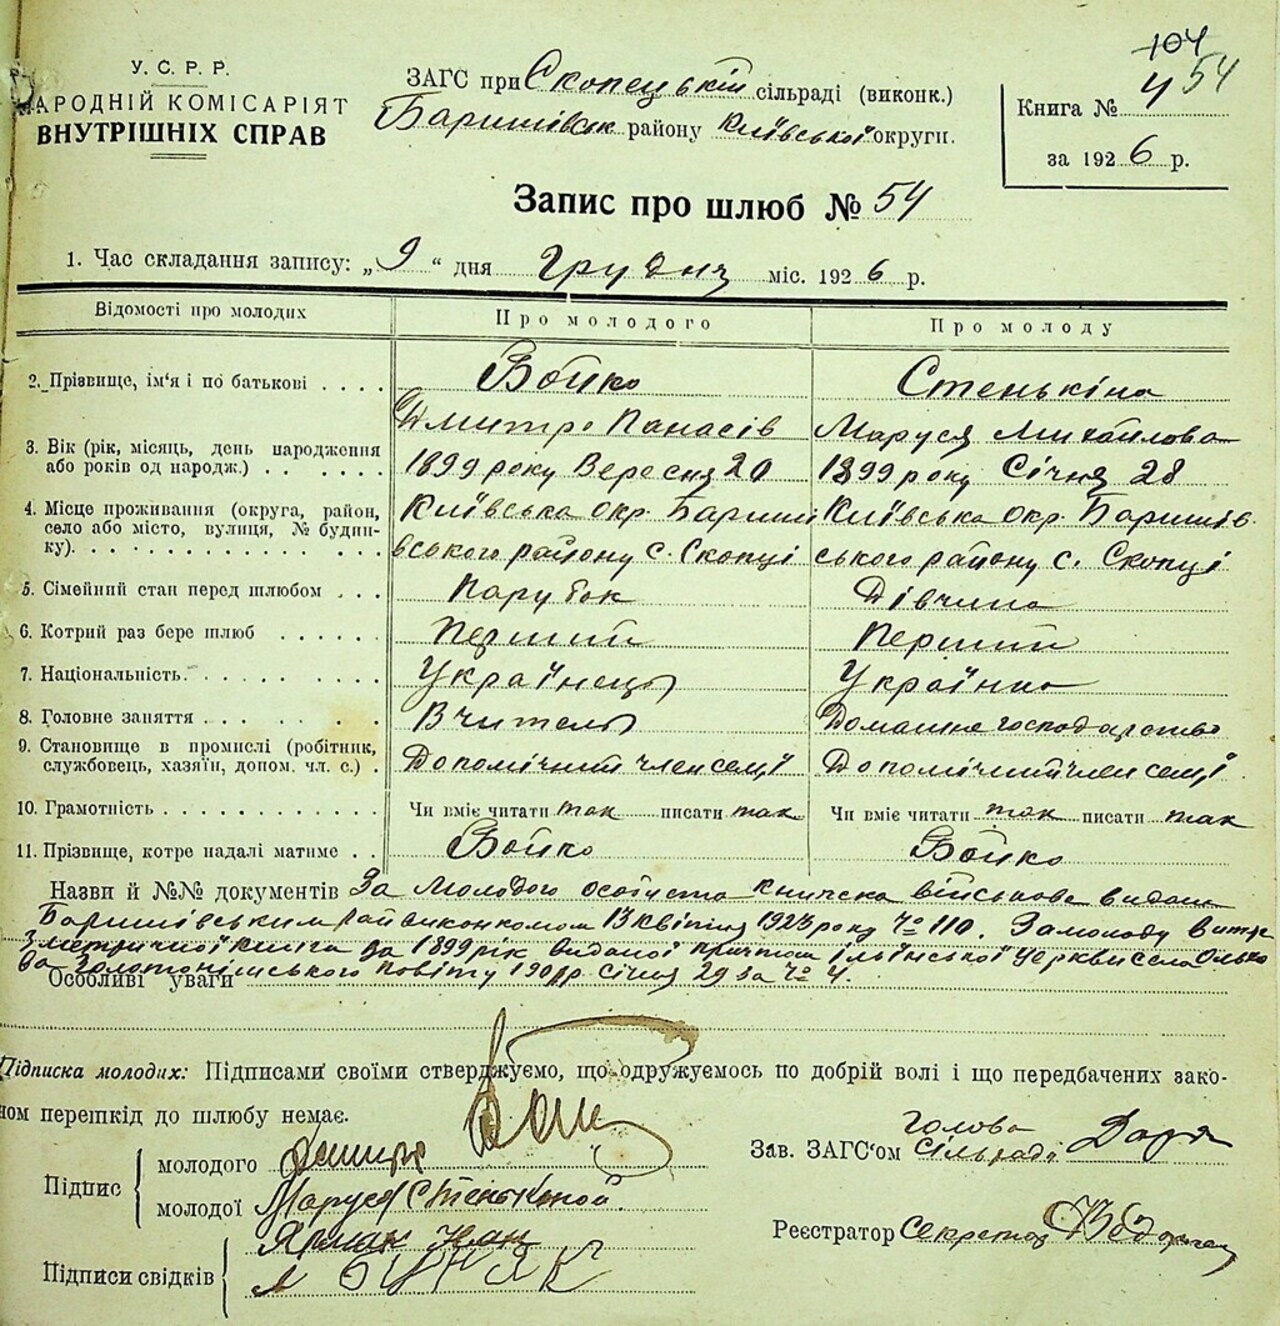 104
54
У. С. Р. Р.
НАРОДНІЙ КОМІСАРІЯТ
ВНУТРІШНІХ СПРАВ
ЗАГС при Скопецькій сільраді (виконк.)
Баришівськ району Київської округи.
Книга № 4
за 1926 р.
Запис про шлюб № 54
1. Час складання запису: „9“ дня Грудня міс. 1926 р.
Відомості про молодих
Про молодого
Про молоду
2. Прізвище, ім‘я і по батькові
Бойко
Стенькіна
Дмитро Панасів
Маруся Михайлова
3. Вік (рік, місяць, день народження або років од народж.)
1899 року Вересня 20
1899 року Січня 28
4. Місце проживання (округа, район, село або місто, вулиця, № будинку).
Київська Окр. Бариші
вського району с. Скопці
Київська Окр. Баришів
ського району с. Скопці
5. Сімейний стан перед шлюбом
Парубок
Дівчина
6. Котрий раз бере шлюб
Перший
Перший
7. Національність.
Українець
Українка
8. Головне заняття
Вчитель
Домашнє господарство
9. Становище в промислі (робітник, службовець, хазяїн, допом. чл. с.)
Допомічний член семї
Допомічний член семї
10. Грамотність
Чи вміє читати так писати так
Чи вміє читати так писати так
11. Прізвище, котре надалі матиме
Бойко
Бойко
Назви й №№ документів За молодого особиста книжка військове видана
Баришівським райвиконкомом 13 квітня 1923 року № 110. За молоду витяг
З метричної книги за 1899 рік виданої причтом Ільїнської Церкви села
Золотонішського повіту Січня 29 за № 4.
Особливі уваги
Підписка молодих: Підписами своїми стверджуємо, що одружуємось по добрій волі і що передбачених зако-
ном перешкід до шлюбу немає.
Підпис
молодого Дмитро Бойко
молодої Маруся Стенькіной
Підписи свідків
Ярмак Іван
Зав. ЗАГС‘ом Голова
Сільради
Реєстратор Секретар